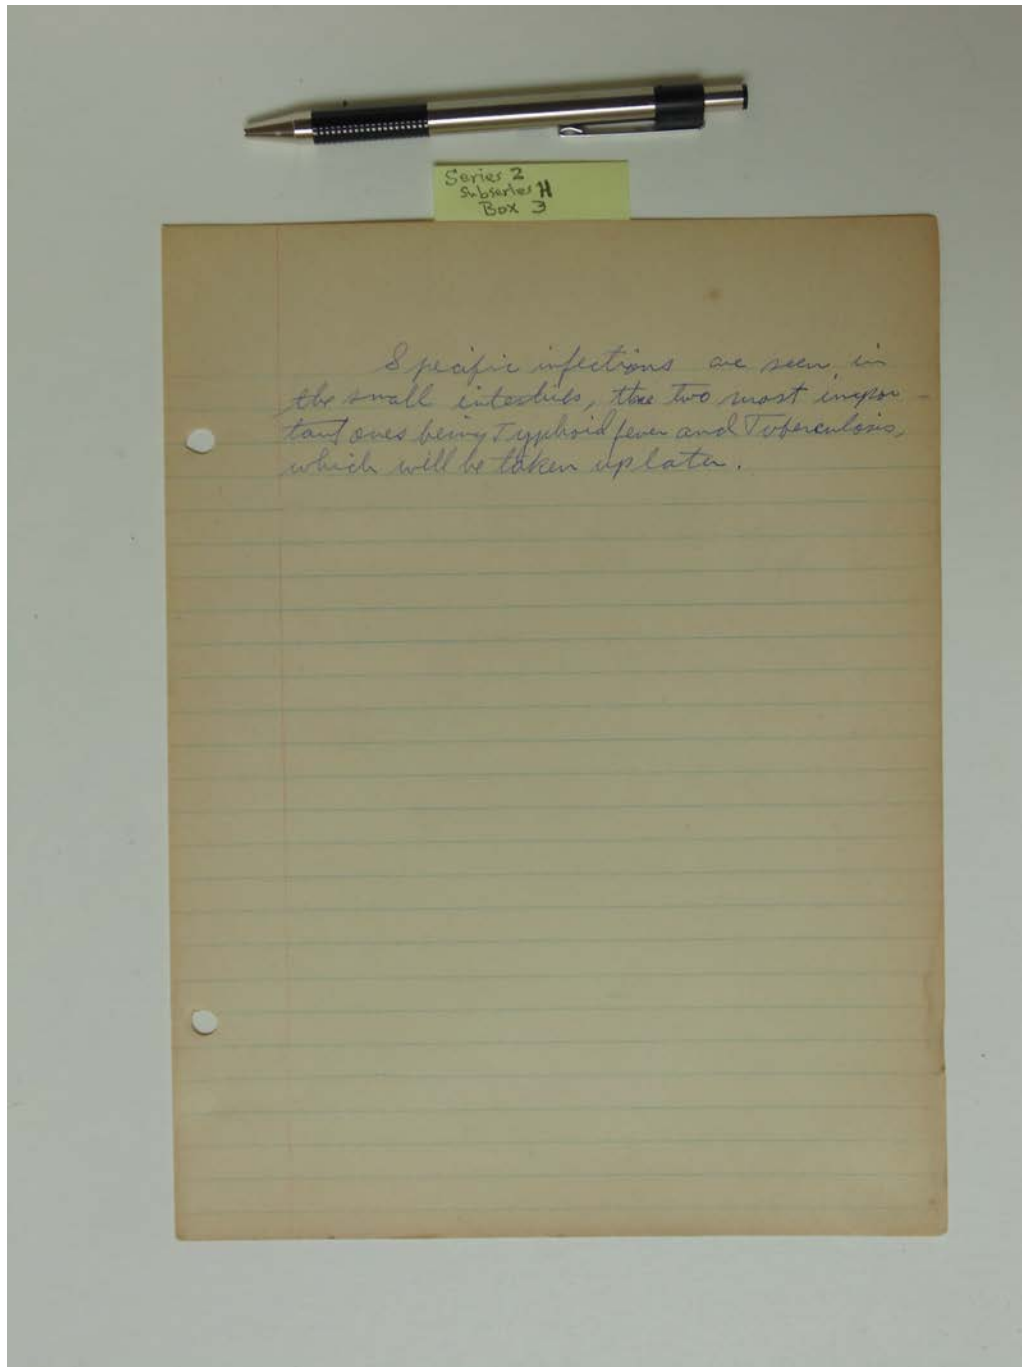 Series 2
Subseries H
Box 3
Specific infections are seen in
the small intestines, the two most impor-
tant ones being Typhoid fever and Tuberculosis,
which will be taken up later.